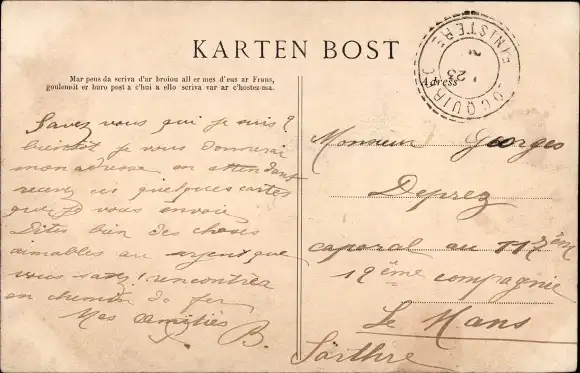 KARTEN BOST
Mar peus da scriva d'ar broiou all er mes d'eus ar Frans,
goulennit er buro post a c'hui a ello scriva var ar c'hostez-ma.
FINISTERE
LOCQUIREC
25
Adress
Savez vous qui je suis?
bientôt je vous donnerai
mon adresse en attendant
recevez ces quelques cartes
que je vous envoie
Dites bien des choses
aimables au sergent que
vous savez! rencontrer
en chemin de fer
Mes amitiés B.
Monsieur Georges
Deprez
caporal au 117ème
12ème compagnie
Le Mans
Sarthre